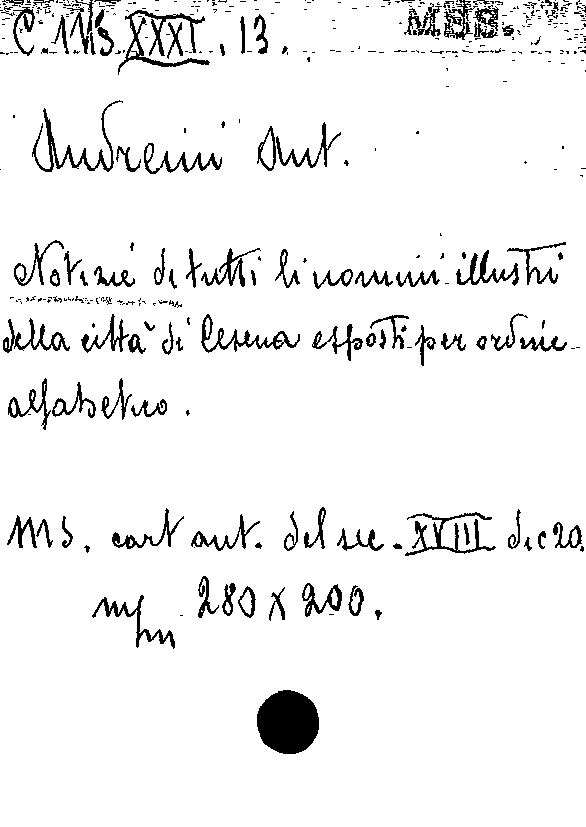 MSS.
C. Ms XXXI. 13.
Andreini Ant.
Notizie di tutti li uomini illustri
della città di Cesena esposti per ordine
alfabetico.
MS. cart aut. del sec. XVIII di c 20.
m/m 280 X 200.